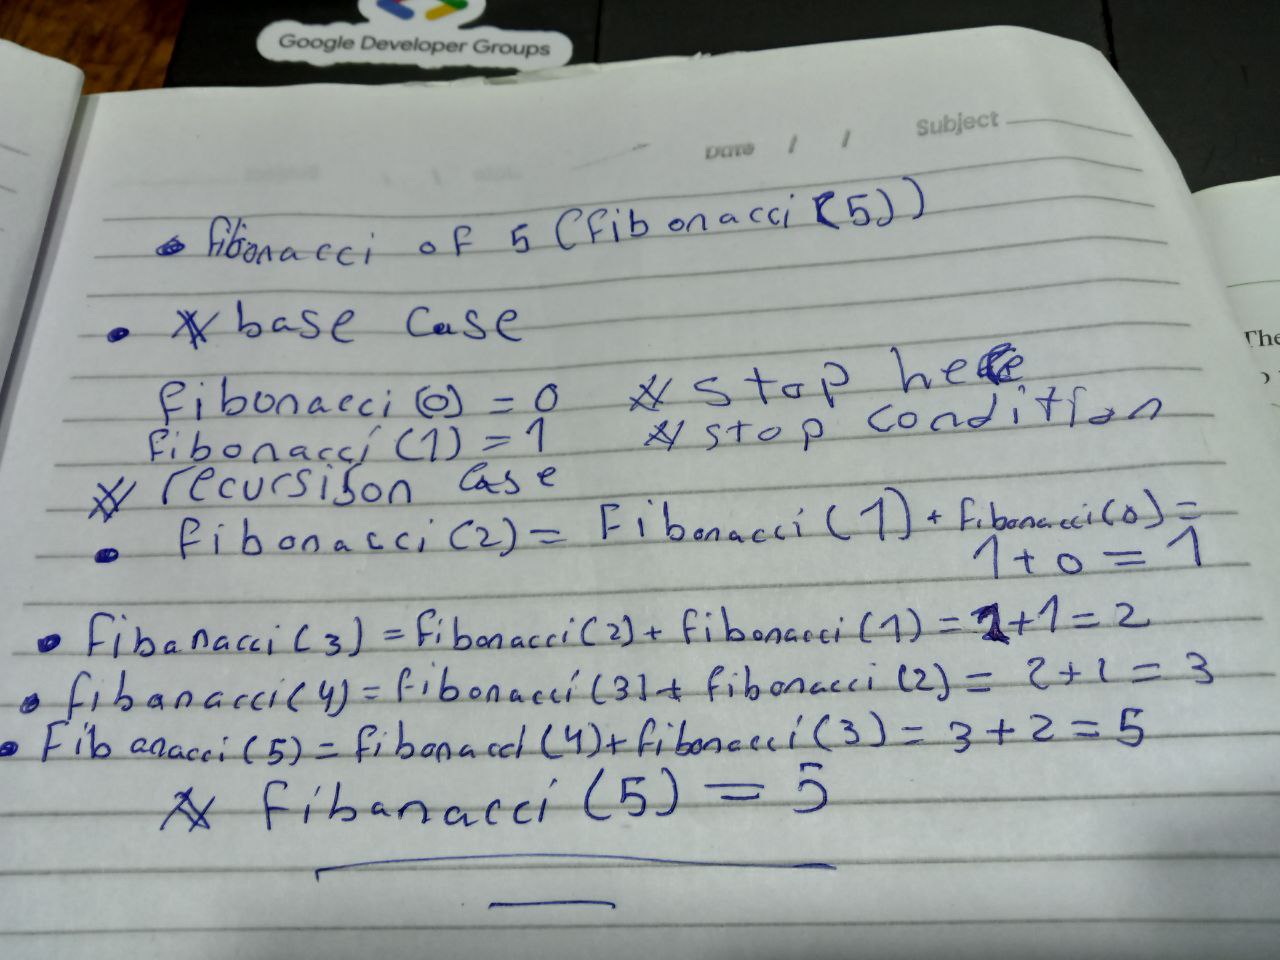 Google Developer Groups
Date / / Subject
• fibonacci of 5 (fibonacci (5))
• * base case
fibonacci (0) = 0 * stop here
fibonacci (1) = 1 * stop condition
* recursison case
• fibonacci (2) = Fibonacci (1) + fibonacci (0) =
1 + 0 = 1
• fibanacci (3) = fibonacci (2) + fibonacci (1) = 1 + 1 = 2
• fibanacci (4) = fibonacci (3) + fibonacci (2) = 2 + 1 = 3
• Fibanacci (5) = fibonacci (4) + fibonacci (3) = 3 + 2 = 5
* fibanacci (5) = 5
The